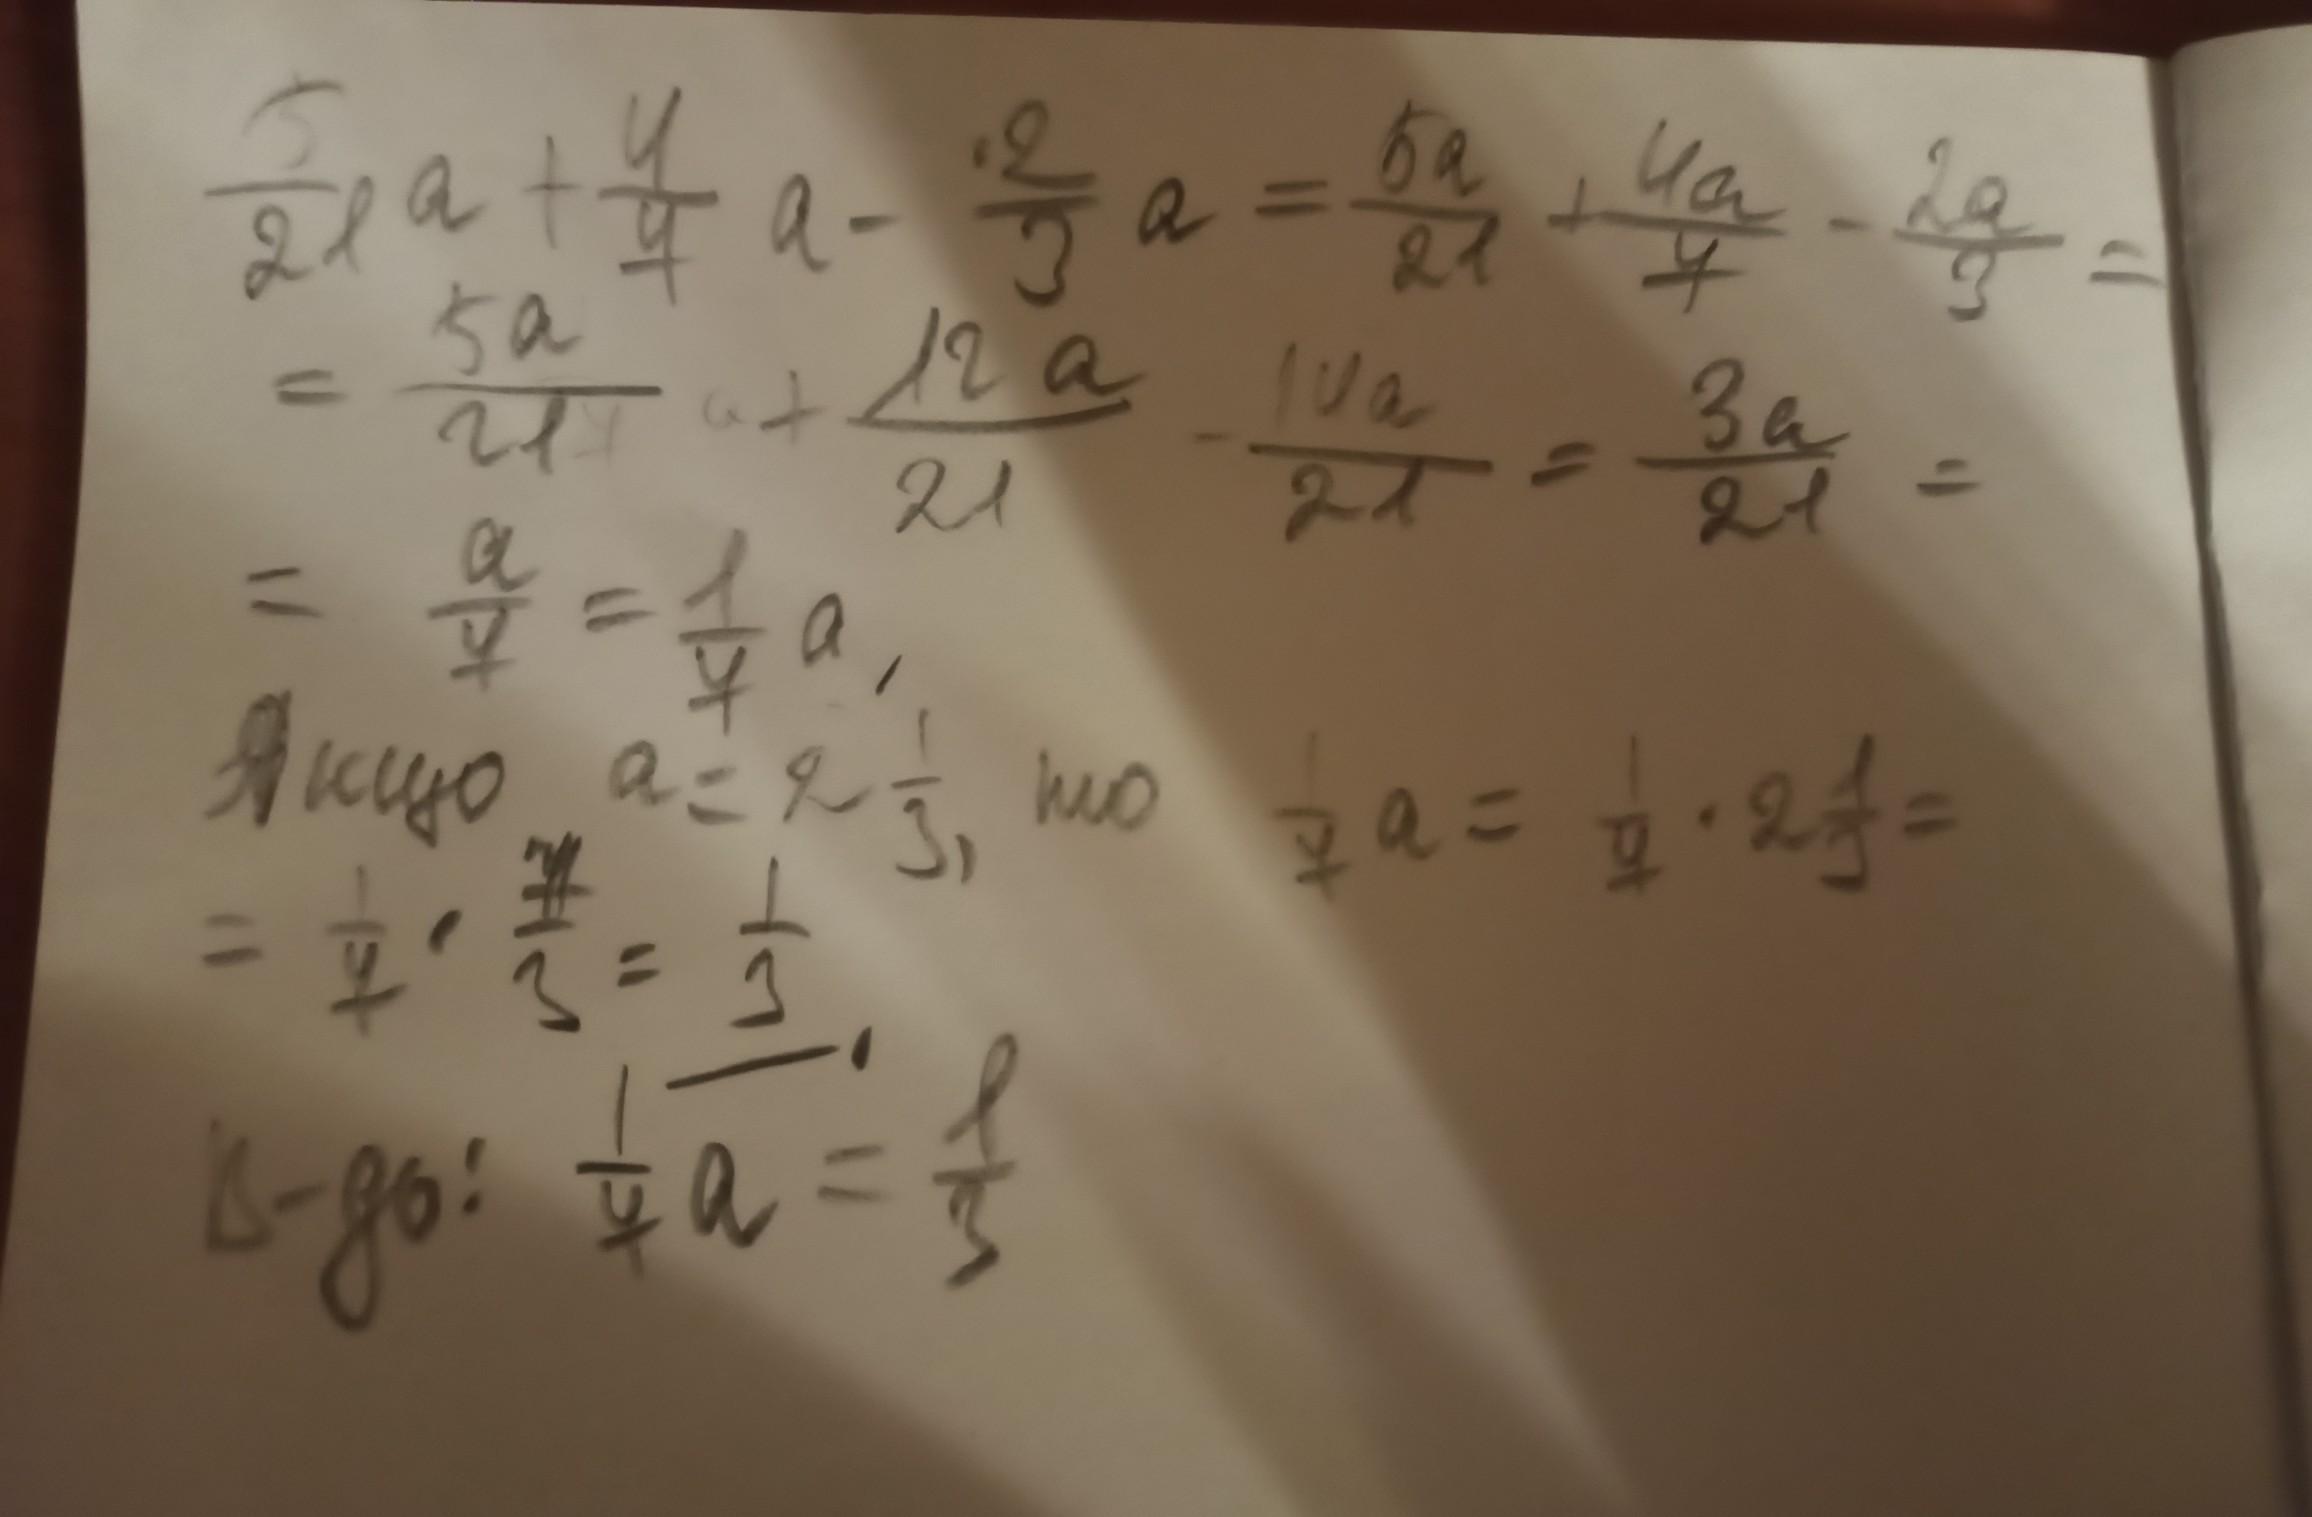 5/21 a + 4/7 a - 2/3 a = 5a/21 + 4a/7 - 2a/3 =
= 5a/21 + 12a/21 - 14a/21 = 3a/21 =
= a/7 = 1/7 a,
Якщо a = 2 1/3, то 1/7 a = 1/7 · 2 1/3 =
= 1/7 · 7/3 = 1/3.
В-дь: 1/7 a = 1/3